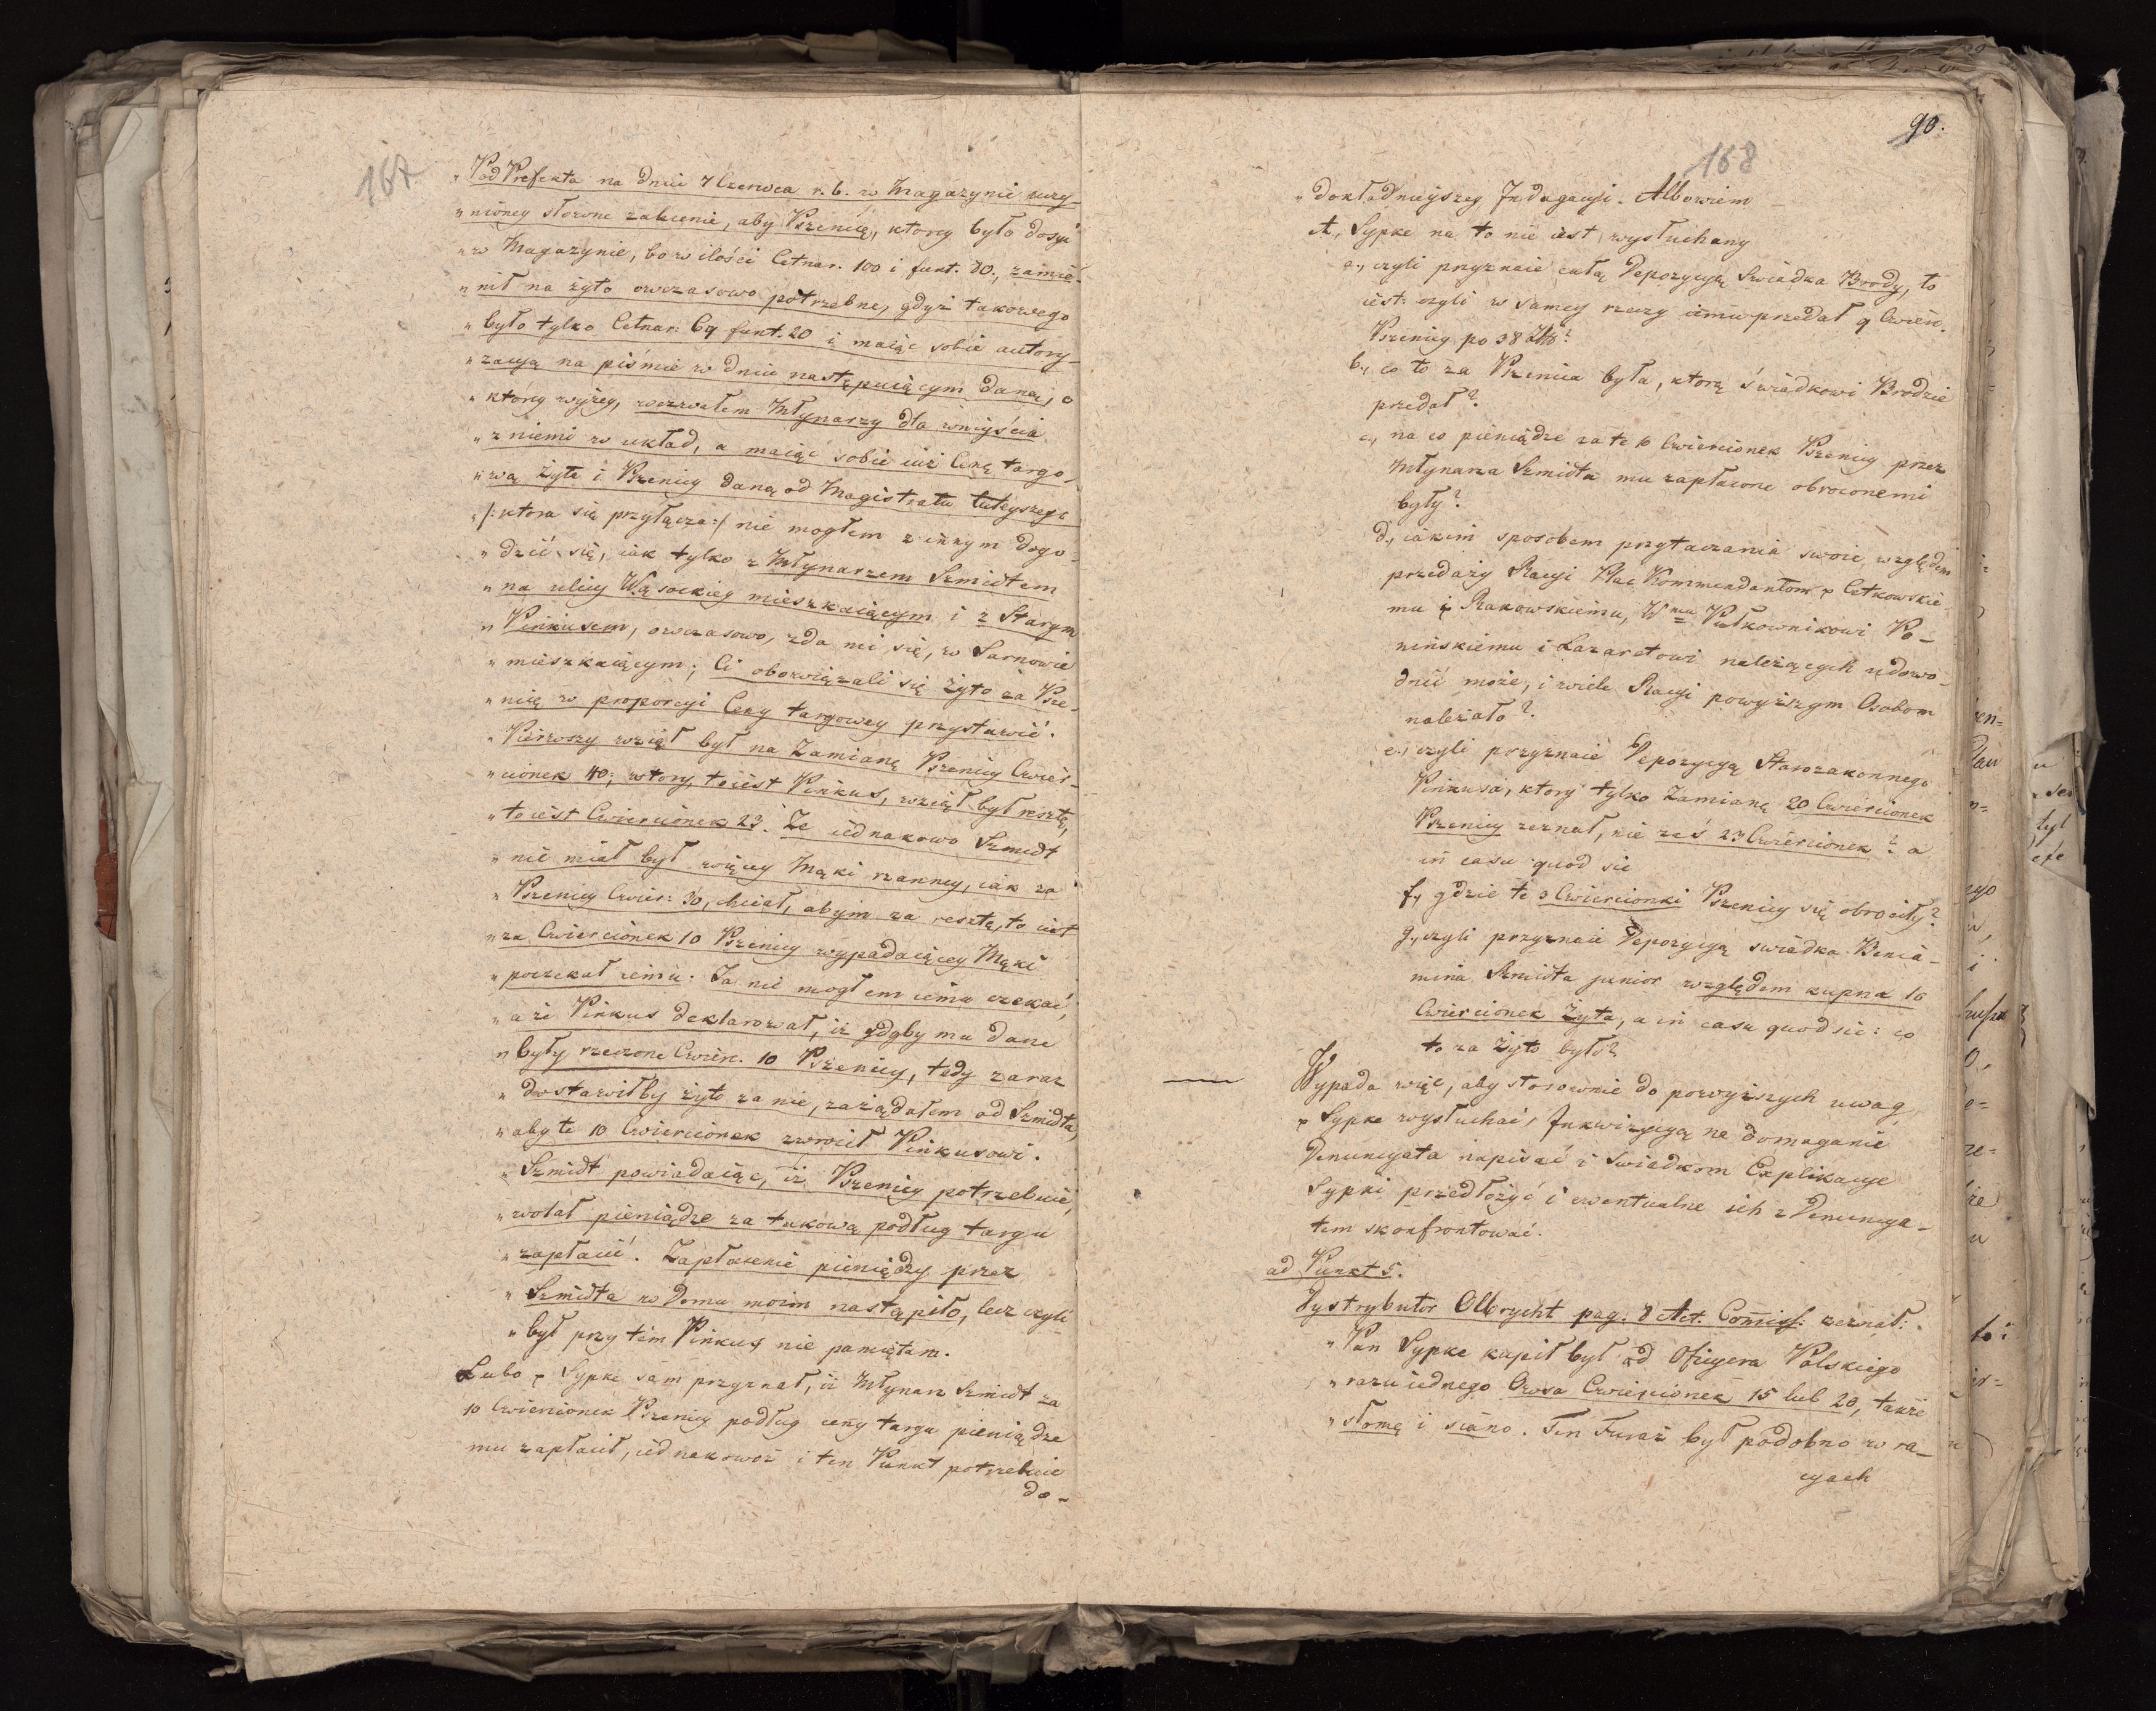 167
„ Pod Prefekta na dniu 7 Czerwca r. b. w Magazynie uczy-
„ nioney słowne zalecenie, aby Pszenicę, ktorey było dosyć
„ w Magazynie, bo w ilości Cetnar. 100 i funt. 80., zamie-
„ nił na żyto owczasowo potrzebne, gdyż takowego
„ było tylko Cetnar: 69 funt. 20 i maiąc sobie autory-
„ zacyą na piśmie w dniu następuiącym daną, o
„ ktorey wyżey, wezwałem Młynarzy dla wniyścia
„ z niemi w układ, a maiąc sobie iuż Cenę targo-
„ wą żyta i Pszenicy daną od Magistratu tuteyszego
„ /: ktora się przyłącza :/ nie mogłem z innym dogo-
„ dzić się, iak tylko z Młynarzem Szmidtem
„ na ulicy Wąsockiey mieszkaiącym i z Starym
„ Pinkusem, owczasowo, zda mi się, w Sarnowie
„ mieszkaiącym; Ci obowiązali się żyto za Psze-
„ nicę w proporcyi Ceny targowey przystawić.
„ Pierwszy wziął był na Zamianę Pszenicy Cwier-
„ cionek 40; wtory, to iest Pinkus, wziął był resztę,
„ to iest Cwiercionek 23. Że iednakowo Szmidt
„ nie miał był więcey Mąki rzanney, iak za
„ Pszenicy Cwier: 30, chciał, abym za resztę, to iest
„ za Cwiercionek 10 Pszenicy wypadaiącey Mąki
„ poczekał iemu. Ja nie mogłem iemu czekać,
„ a że Pinkus deklarował, iż gdyby mu dane
„ były rzeczone Cwier. 10 Pszenicy, tedy zaraz
„ dostawiłby żyto za nie, zażądałem od Szmidta,
„ aby te 10 Cwiercionek zwrocił Pinkusowi.
„ Szmidt powiadaiąc, iż Pszenicy potrzebuie,
„ wolał pieniądze za takową podług targu
„ zapłacić. Zapłacenie pieniędzy przez
„ Szmidta w Domu moim nastąpiło, lecz czyli
„ był przy tem Pinkus nie pamiętam.
Lubo P. Sypke sam przyznał, iż Młynarz Szmidt za
10 Cwiercionek Pszenicy podług ceny targu pieniądze
mu zapłacił, iednakowoż i ten Punkt potrzebuie
do-
90.
168
„ dokładnieyszey Indagacyi. Albowiem
A, Sypke na to nie iest wysłuchany
a., czyli przyznaie całą Depozycyą Swiadka Brody, to
iest: czyli w samey rzeczy iemu przedał 9 Cwier.
Pszenicy po 38 Złt?
b., co to za Pszenica była, ktorą świadkowi Brodzie
przedał?
c., na co pieniądze za te 10 Cwiercionek Pszenicy przez
Młynarza Szmidta mu zapłacone obroconemi
były?
d., iakim sposobem przytaczania swoie, względem
przedaży Racyi Plac Kommendantom P. Cetkowskie-
mu i Rakowskiemu, Wmu Pułkownikowi Po-
nińskiemu i Lazaretowi należących udowo-
dnić może, i wiele Racyi powyższym Osobom
należało?
e., czyli przyznaie Depozycyą Starozakonnego
Pinkusa, ktory tylko Zamianę 20 Cwiercionek
Pszenicy zeznał, nie zaś 23 Cwiercionek? a
in casu quod sic
f., gdzie te 3 Cwiercionki Pszenicy się obrociły?
g., czyli przyznaie Depozycyą swiadka Benia-
mina Szmidta junior względem kupna 16
Cwiercionek Żyta, a in casu quod sic: co
to za żyto było?
Wypada więc, aby stosownie do powyższych uwag,
P. Sypke wysłuchać, Inkwizycyą na domaganie
Denuncyata napisać i Swiadkom Explikacye
Sypki przedłożyć i ewentualne ich z Denuncya-
tem skonfrontować.
ad Punkt 5.
Dystrybutor Olbrycht pag. 8 Act. Comiss: zeznał:
„ Pan Sypke kupił był od Oficyera Polskiego
„ razu iednego Owsa Cwiercionek 15 lub 20, także
„ słomę i siano. Ten Furaż był podobno w ra-
cyach